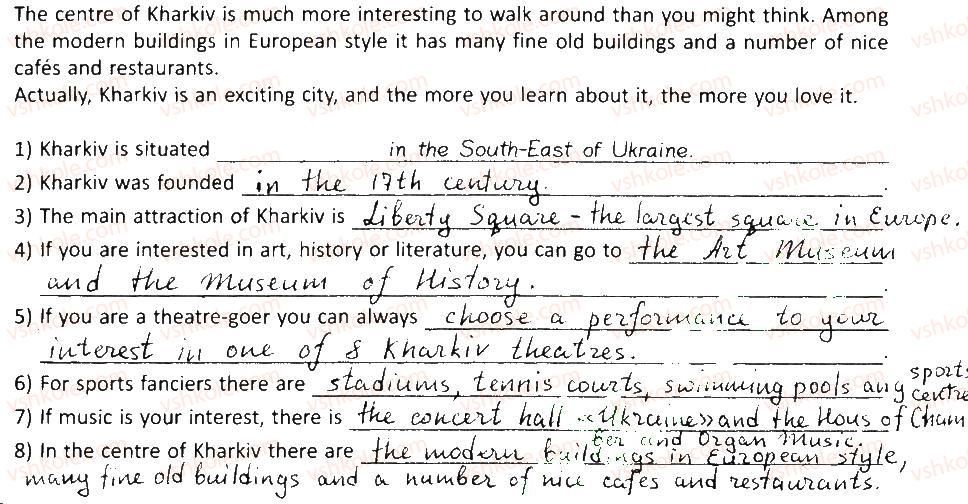 The centre of Kharkiv is much more interesting to walk around than you might think. Among
the modern buildings in European style it has many fine old buildings and a number of nice
cafés and restaurants.
Actually, Kharkiv is an exciting city, and the more you learn about it, the more you love it.
1) Kharkiv is situated in the South-East of Ukraine.
2) Kharkiv was founded in the 17th century.
3) The main attraction of Kharkiv is Liberty Square – the largest square in Europe.
4) If you are interested in art, history or literature, you can go to the Art Museum
and the Museum of History.
5) If you are a theatre-goer you can always choose a performance to your
interest in one of 8 Kharkiv theatres.
6) For sports fanciers there are stadiums, tennis courts, swimming pools any sports
centre
7) If music is your interest, there is the concert hall «Ukraine» and the Hous of Cham
ber and Organ Music.
8) In the centre of Kharkiv there are the modern buildings in European style,
many fine old buildings and a number of nice cafes and restaurants.